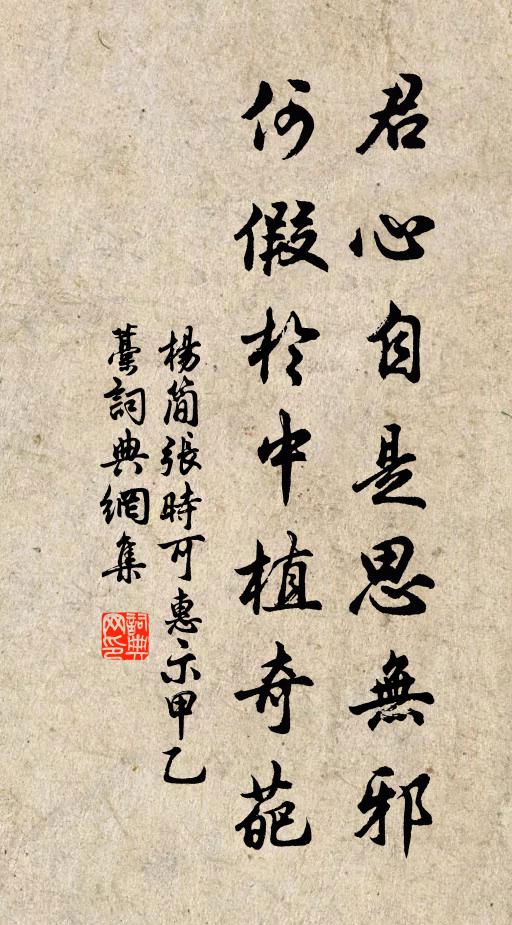 君心自是思無邪
何假於中植奇葩
楊簡張時可惠示甲乙
藁詞典網集
詞典
网印